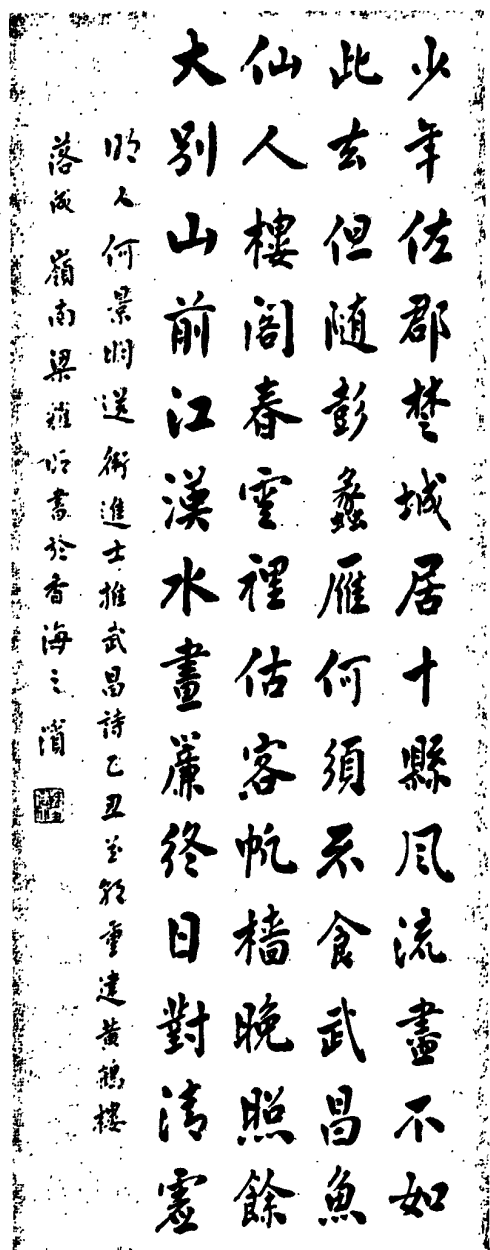 少年佐郡楚城居十縣風流盡不如
此去但随彭蠡雁何須不食武昌魚
仙人樓閣春雲裡估客帆檣晚照餘
大别山前江漢水畫簾終日對清虛
明人何景明送衛進士推武昌詩乙丑花朝重建黄鶴樓
落成 嶺南梁明書於香海之濱